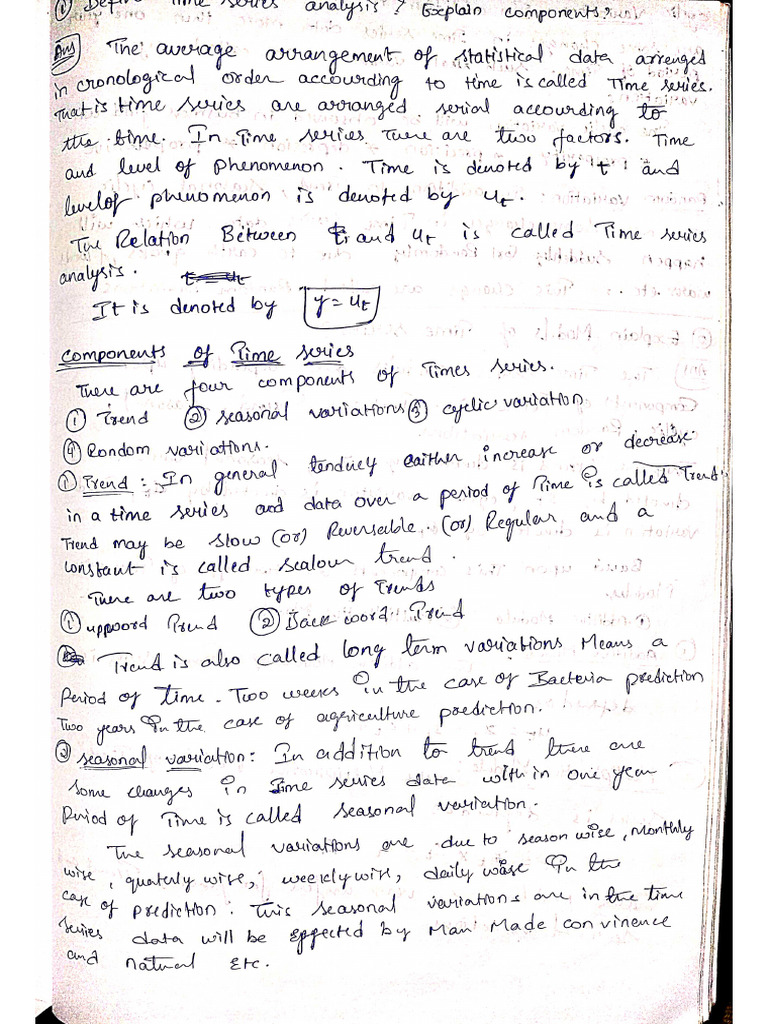 ① Define Time series analysis? Explain components?
Ans The average arrangement of statistical data arrenged
in cronological order accourding to time is called Time series.
That is time series are arranged serial accourding to
the time. In Time series There are two factors. Time
and level of phenomenon. Time is denoted by t: and
levelof phenomenon is denoted by ut.
The Relation Between ti and ut is called Time series
analysis.
It is denoted by y = ut
Components of Time series
There are four components of Times series.
① Trend ② seasonal variations ③ cyclic variation
④ Random variations.
① Trend: In general tendency eaither increase or decrease
in a time series and data over a period of Time is called Trend.
Trend may be slow (or) Reversable. (or) Regular and a
constant is called Scalour trend.
There are two types of Trends
① uppoord Trend ② Back word Trend
Trend is also called long term variations Means a
Period of time. Two weeks in the case of Bacteria prediction
Two years in the case of agericulture prediction.
② seasonal variation: In addition to trend there are
some changes in Time series data with in one year
Period of Time is called seasonal variation.
The seasonal variations are due to season wise, monthly
wise, quaterly wise, weekly wise, daily wise in the
case of prediction. This seasonal variations are in the time
series data will be effected by Man Made convinence
and natural Etc.